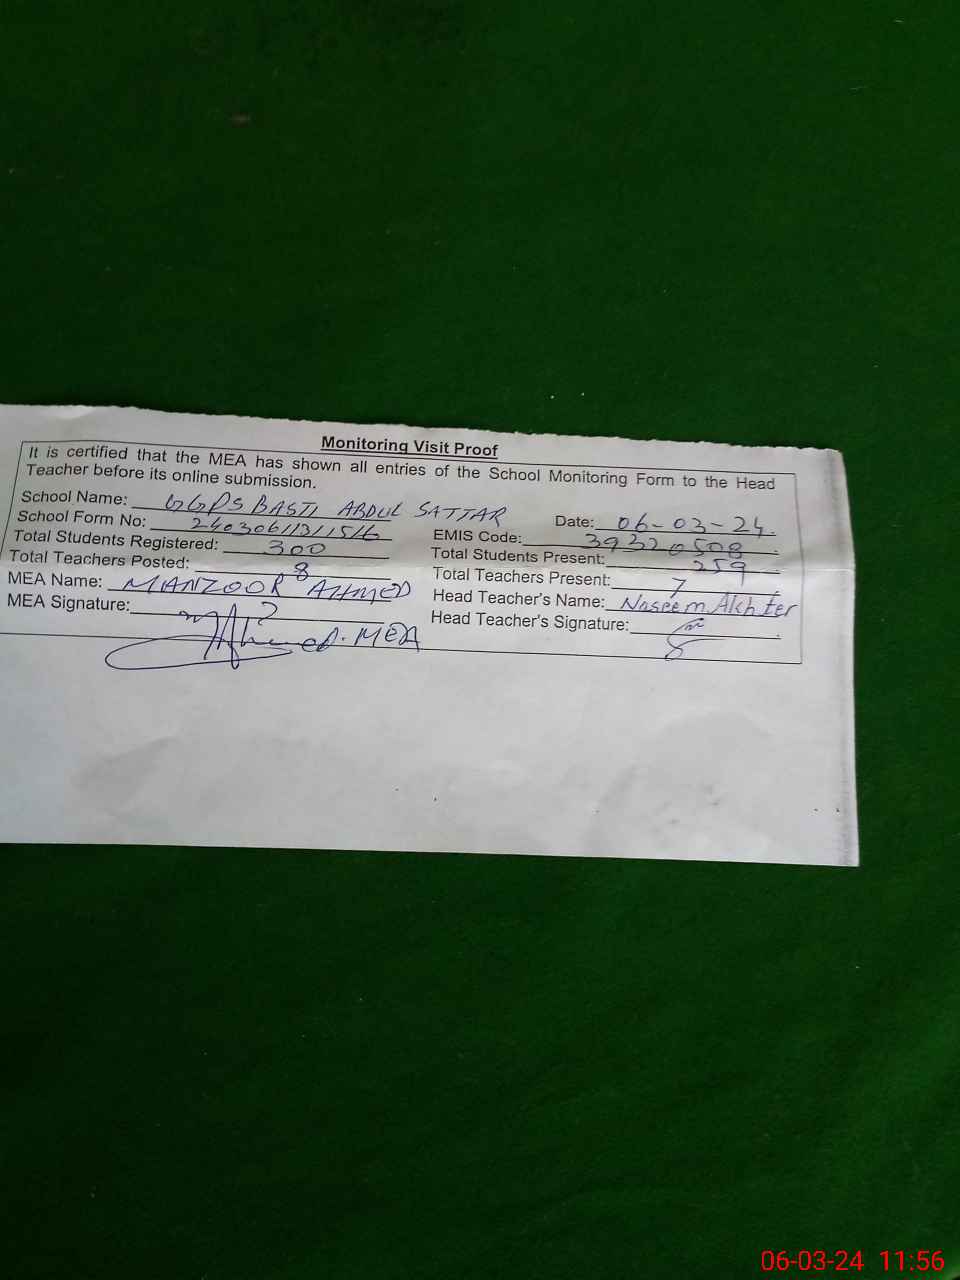 Monitoring Visit Proof
It is certified that the MEA has shown all entries of the School Monitoring Form to the Head
Teacher before its online submission.
School Name: GGPS BASTI ABDUL SATTAR Date: 06-03-24
School Form No: 24030611311516 EMIS Code: 39320508
Total Students Registered: 300 Total Students Present: 259
Total Teachers Posted: 8 Total Teachers Present: 7
MEA Name: MANZOOR AHMED Head Teacher's Name: Naseem Akhter
MEA Signature: Ahmed. MEA Head Teacher's Signature:
06-03-24 11:56